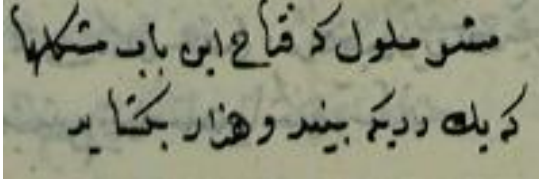 مشو ملول که فتاح این باب مشکلها
که یک در دیگر ببیند و هزار بگشاید